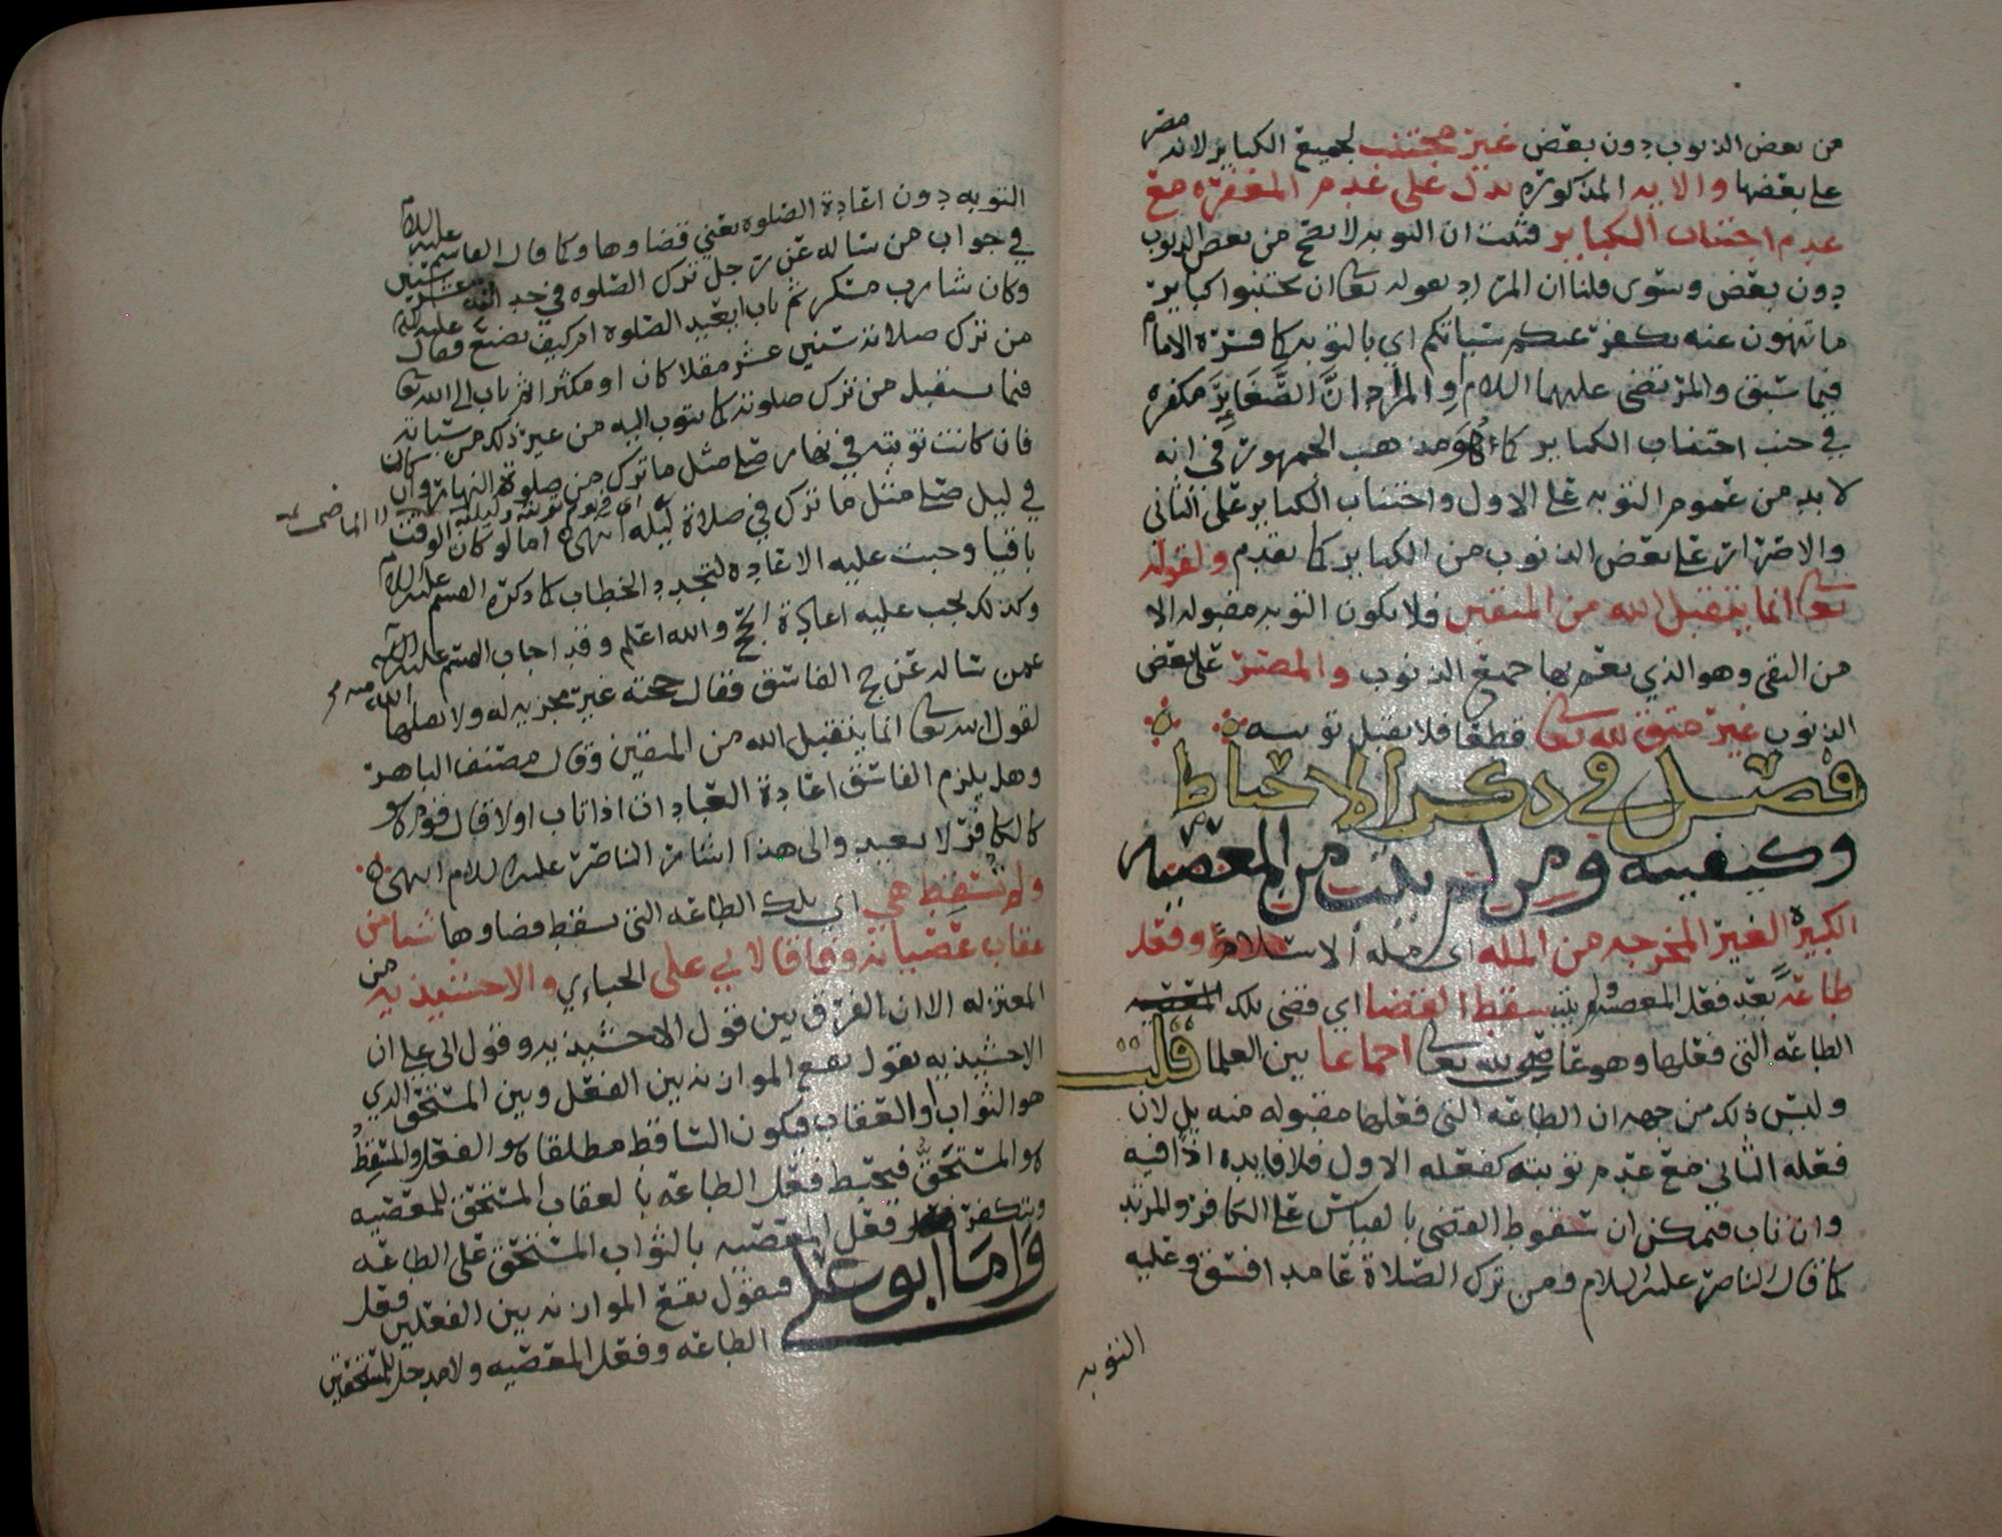 من بعض الذنوب دون بعض غير مجتنب لجميع الكباير لانه مصر
على بعضها والايه المذكوره تدل على عدم المغفره مع
عدم اجتناب الكباير فثبت ان التوبه لا تصح من بعض الذنوب
دون بعض وسوى قلنا ان المراد بقوله تعا ان تجتنبوا كباير
ما تنهون عنه نكفر عنكم سياتكم اي بالتوبه كما فسره الامام
فيما سبق والمرتضى عليهما السلام او المراد ان الصَّغَايِرَ مكفره
في جنب اجتناب الكباير كما هُوَ مذهب الجمهور في انه
لا بد من عموم التوبه على الاول واجتناب الكباير على الثاني
والاصرار على بعض الذنوب من الكباير كما تقدم ولقوله
تعا انما يتقبل الله من المتقين فلا يكون التوبه مقبوله الا
من التقي وهو الذي تعم بها جميع الذنوب والمصر على بعض
الذنوب غير متق لله تعا قطعا فلا يقبل توبته
فصل في ذكر الاحباط
وكيفيته ومن لم يتب من المعصيه
الكبيرة الغير المخرجه من المله اى مله الاسلام وفعل
طاعةً بعد فعل المعصيه ولم يتب سقط القضا اي قضى تلك
الطاعه التي فعلها وهو عاصٍ لله تعا اجماعا بين العلما قلت
وليس ذلك من جهه ان الطاعه التي فعلها مقبوله منه بل لان
فعله الثاني مع عدم توبته كفعله الاول فلا فايده اذاً فيه
وان تاب فيمكن ان سقوط القضى بالقياس على الكافر والمرتد
كما قال الناصر عليه السلام ومن ترك الصلاة عامدا فسق وعليه
التوبه
التوبه دون اعادة الصلوه يعني قضاوها وكما قال القاسم عليه السلام
في جواب من ساله عن رجل ترك الصلوه في حد عشر سنين
وكان شارب مسكر ثم تاب ايعيد الصلوه ام كيف يصنع فقال عليه
من ترك صلاته سنين عشر مقلا كان او مكثرا ثم تاب الى الله تعا
فيما يستقبل من ترك صلوته كما يتوب اليه من غير ذلك من سياته
فان كانت توبته في نهار صلى مثل ما ترك من صلوة النهار وان كان
في ليل صلى مثل ما ترك في صلاة ليله انتهى اما لو كان الوقت
باقيا وجبت عليه الاعاده لتجدد الخطاب كما ذكره عليه السلام
وكذلك يجب عليه اعادة الحج والله اعلم وقد اجاب عليه السلام
عمن ساله عن حج الفاسق فقال حجته غير مجزيه له ولا يقبلها الله منه
لقول الله تعا انما يتقبل الله من المتقين وقال مصنف الباهر
وهل يلزم الفاسق اعادة العبادات اذا تاب اولا قال قوم هو
كالكافر لا يعيد والى هذا اشار الناصر عليه السلام انتهى
ولم تسقط هي اي تلك الطاعه التي سقط قضاوها شيا من
عقاب عصيانه وفاقا لابي على الجباءي والاخشيذيه من
المعتزله الا ان الفرق بين قول الاخشيذيه وقول ابي علي ان
الاخشيذيه يقول تقع الموازنه بين الفعل وبين المستحق الذي
هو الثواب او العقاب فيكون الساقط مطلقا هو الفعل والمسقِط
هو المستحق فيحبط فعل الطاعه بالعقاب المستحق للمعصيه
ويتكفر فعل المعصيه بالثواب المستحق على الطاعه
وَاما ابو على فيقول تقع الموازنه بين الفعلين فعل
الطاعه وفعل المعصيه ولا مدخل للمستحقين